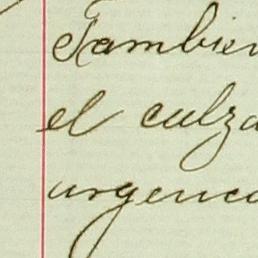 Tambien
el culza
urgenca